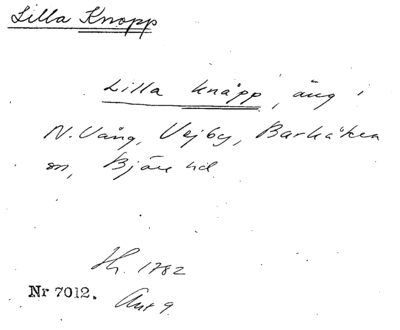 Lilla Knopp
Lilla Knäpp, äng i
N. Vång, Vejby, Barkåkra
sn, Bjäre hd.
Hh. 1782
Nr 7012. Akt 9.